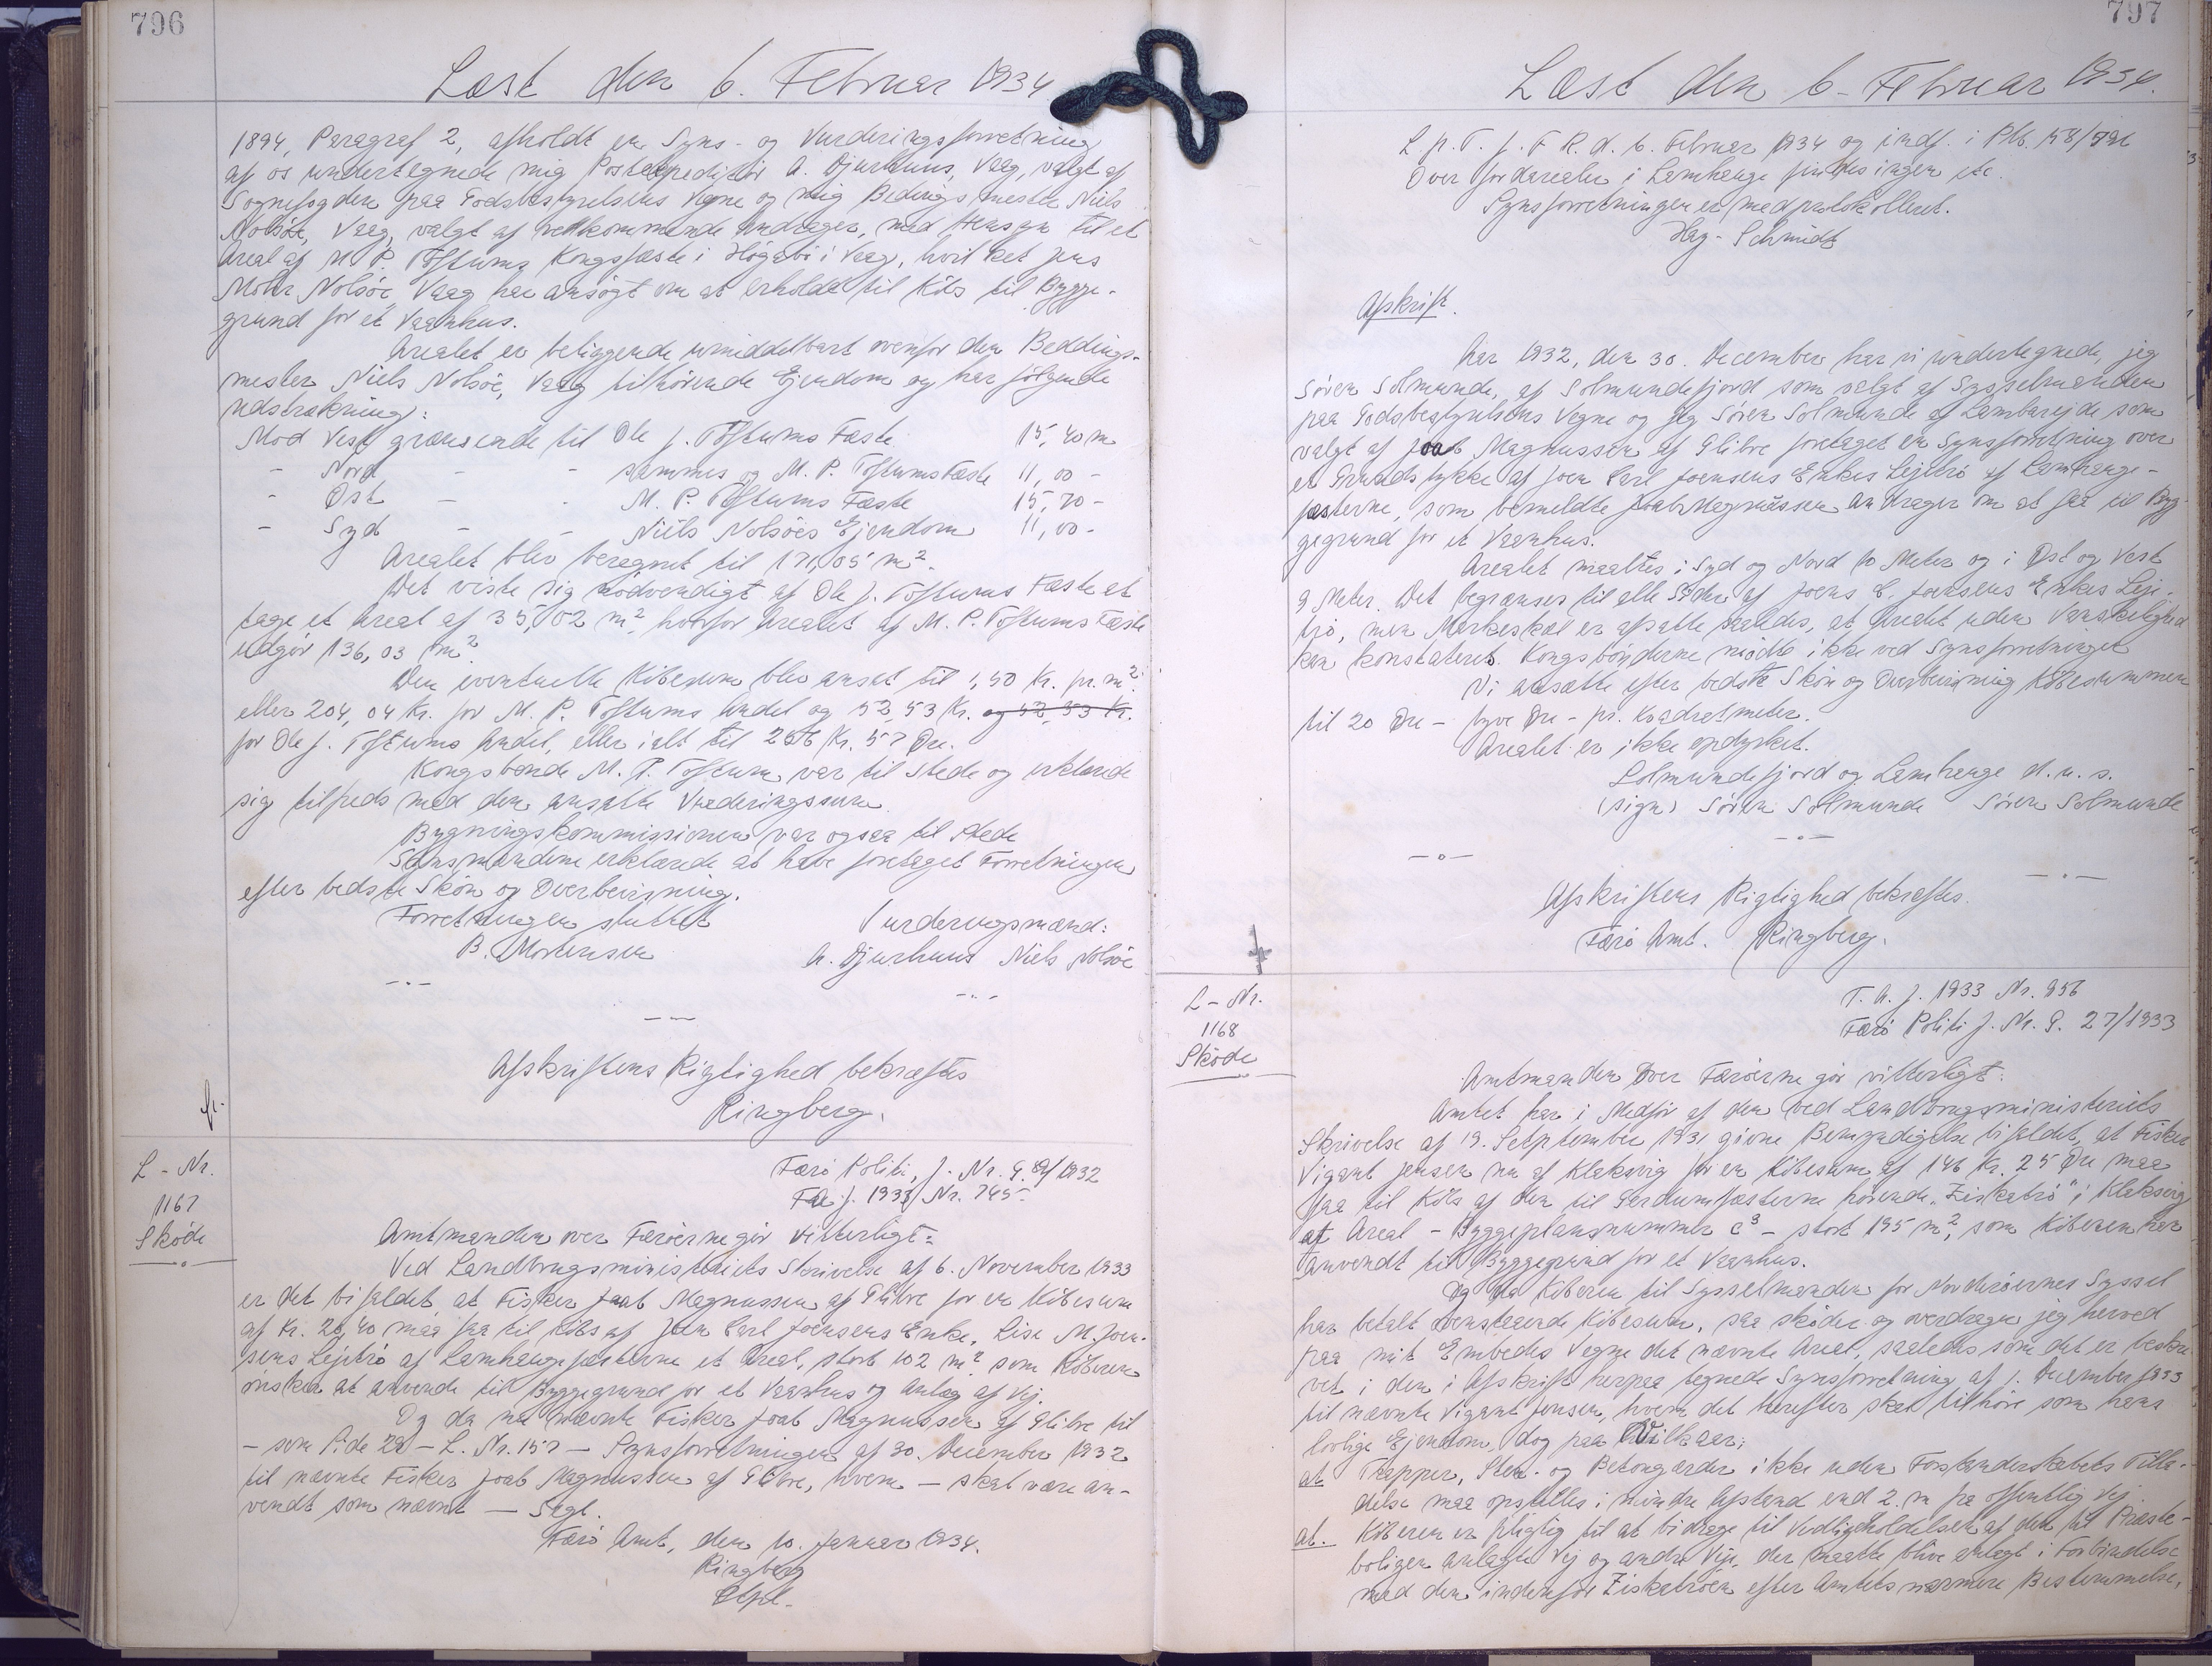 796
Læst den 6. Februar 1934
1894, Paragraf 2, afholdt en Syns- og Vurderingsforretning
af os undertegnede mig Postexpeditör A. Djurhuus, Vaag, valgt af
Sognefogden paa Godsbestyrelsens Vegne og mig Bedingsmester Niels
Nolsöe, Vaag, valgt af vedkommende Andrager, med Hensyn til et
Areal af M. P. Toftums Kongsfæste i Högabö i Vaag, hvilket Jens
Mohr Nolsöe, Vaag har ansøgt om at erholde til Köbs til Bygge-
grund for et Vaanhus.
Arealet er beliggende umiddelbart ovenfor den Beddings-
mester Niels Nolsöe, Vaag tilhörende Ejendom og har fölgende
Udstrækning:
Mod Vest grænsende til Ole J. Toftums Fæste 15,40 m
- Nord - - sammes og M. P. Toftums Fæste 11,00 -
- Öst - - M. P. Toftums Fæste 15,70 -
- Syd - - Niels Nolsöes Ejendom 11,00 -
Arealet blev beregnet til 171,05 m².
Det viste sig nödvendigt af Ole J. Toftums Fæste at
tage et Areal af 35,02 m², hvorfor Arealet af M. P. Toftums Fæste
udgör 136,03 m².
Den eventuelle Köbesum blev ansat til 1,50 Kr. pr. m²
eller 204,04 Kr. for M. P. Toftums Andel og 52,53 Kr. og 52,53 Kr.
for Ole J. Toftums Andel, eller ialt til 256 Kr. 57 Öre.
Kongsbonde M. P. Toftum var til Stede og erklærede
sig tilfreds med den ansatte Vurderingssum.
Bygningskommissionen var ogsaa til Stede
Synsmændene erklærede at have foretaget Forretningen
efter bedste Skön og Overbevisning.
Forretningen sluttet Vurderingsmænd:
B. Mortensen A. Djurhuus Niels Nolsöe
Afskriftens Rigtighed bekræftes
Ringberg.
L-Nr.
1167
Sköde
Færö Politi, J. Nr. G. 89/1932
F.A. J. 1933 Nr. 745.
Amtmanden over Færöerne gör vitterligt:
Ved Landbrugsministeriets Skrivelse af 6. November 1933
er det bifaldet, at Fisker Joab Magnussen af Glibre for en Köbesum
af Kr. 20,40 maa faa til Köbs af Joen Carl Joensens Enke, Lise M. Joen-
sens Lejetrö af Lamhaugefæsterne et Areal, stort 102 m² som Köberen
önsker at anvende til Byggegrund for et Vaanhus og Anlæg af Vej.
Og da nu nævnte Fisker Joab Magnussen af Glibre til
- som Side 29 - L. Nr. 157 - Synsforretningen af 30. December 1932
til nævnte Fisker Joab Magnussen af Glibre, hvem - skal være an-
vendt som nævnt - Segl.
Færö Amt, den 10. Januar 1934.
Ringberg
797
Læst den 6. Februar 1934.
L. p. T. f. F. R. d. 6. Februar 1934 og indf. i Ptk.
Over fordarealer i Lamhauge findes ingen etc.
Synsforretningen er medprotokolleret.
Hay-Schmidt
Afskrift.
Aar 1932, den 30. December har vi undertegnede, jeg
Sören Solmunde, af Solmundefjord som valgt af Sysselmanden
paa Godsbestyrelsens Vegne og jeg Sören Solmunde af Lambarejde som
valgt af Joab Magnussen af Glibre foretaget en Synsforretning over
et Grundstykke af Joen Carl Joensens Enkes Lejetrö af Lamhauge-
fæsterne, som bemeldte Joab Magnussen andrager om at faa til Byg-
gegrund for et Vaanhus.
Arealet maaltes i Syd og Nord 10 Meter og i Öst og Vest
9 Meter. Det begrænses til alle Sider af Joens C. Joensens Enkes Leje-
trö, men Mærkeskel er afsatte saaledes, at Arealet uden Vanskelighed
kan konstateres. Kongsbönderne mödte ikke ved Synsforretningen
Vi ansætte efter bedste Skön og Overbevisning Köbesummen
til 20 Öre - tyve Öre - pr. Kvadratmeter.
Arealet er ikke opdyrket.
Solmundefjord og Lamhauge d. u. s.
(sign) Sören Solmunde Sören Solmunde
Afskriftens Rigtighed bekræftes.
Færö Amt. Ringberg.
L-Nr.
1168
Sköde
F. A. J. 1933 Nr. 956
Færö Politi J. Nr. G. 27/1933
Amtmanden over Færöerne gör vitterligt:
Amtet har i Medfør af den ved Landbrugsministeriets
Skrivelse af 19. Setptember 1931 givne Bemyndigelse bifaldet, at Fisker
Vigant Jensen nu af Klaksvig for en Köbesum af 146 Kr. 25 Öre maa
faa til Köbs af den til Gerdumfæsterne hörende "Ziskatrö" i Klaksvig
et Areal - Byggeplansnummer c⁹ - stort 195 m², som Köberen har
anvendt til Byggegrund for et Vaanhus.
Og da Köberen til Sysselmanden for Norderöernes Syssel
har betalt ovenstaaende Köbesum, saa sköder og overdrager jeg herved
paa mit Embedes Vegne det nævnte Areal, saaledes som det er beskre-
vet i den i Afskrift herpaa tegnede Synsforretning af 1. December 1933
til nævnte Vigant Jensen, hvem det herefter skal tilhöre som hans
lovlige Ejendom, dog paa Vilkaar,
at Trapper, Sten- og Betongærder ikke uden Forstanderskabets Tilla-
delse maa opstilles i mindre Afstand end 2 m fra offentlig Vej
at. Köberen er pligtig til at bidrage til Vedligeholdelsen af den til Præste-
boligen anlagte Vej og andre Veje, der maatte blive anlagt i Forbindelse
med den indenfor Ziskatröen efter Amtets nærmere Bestemmelse,